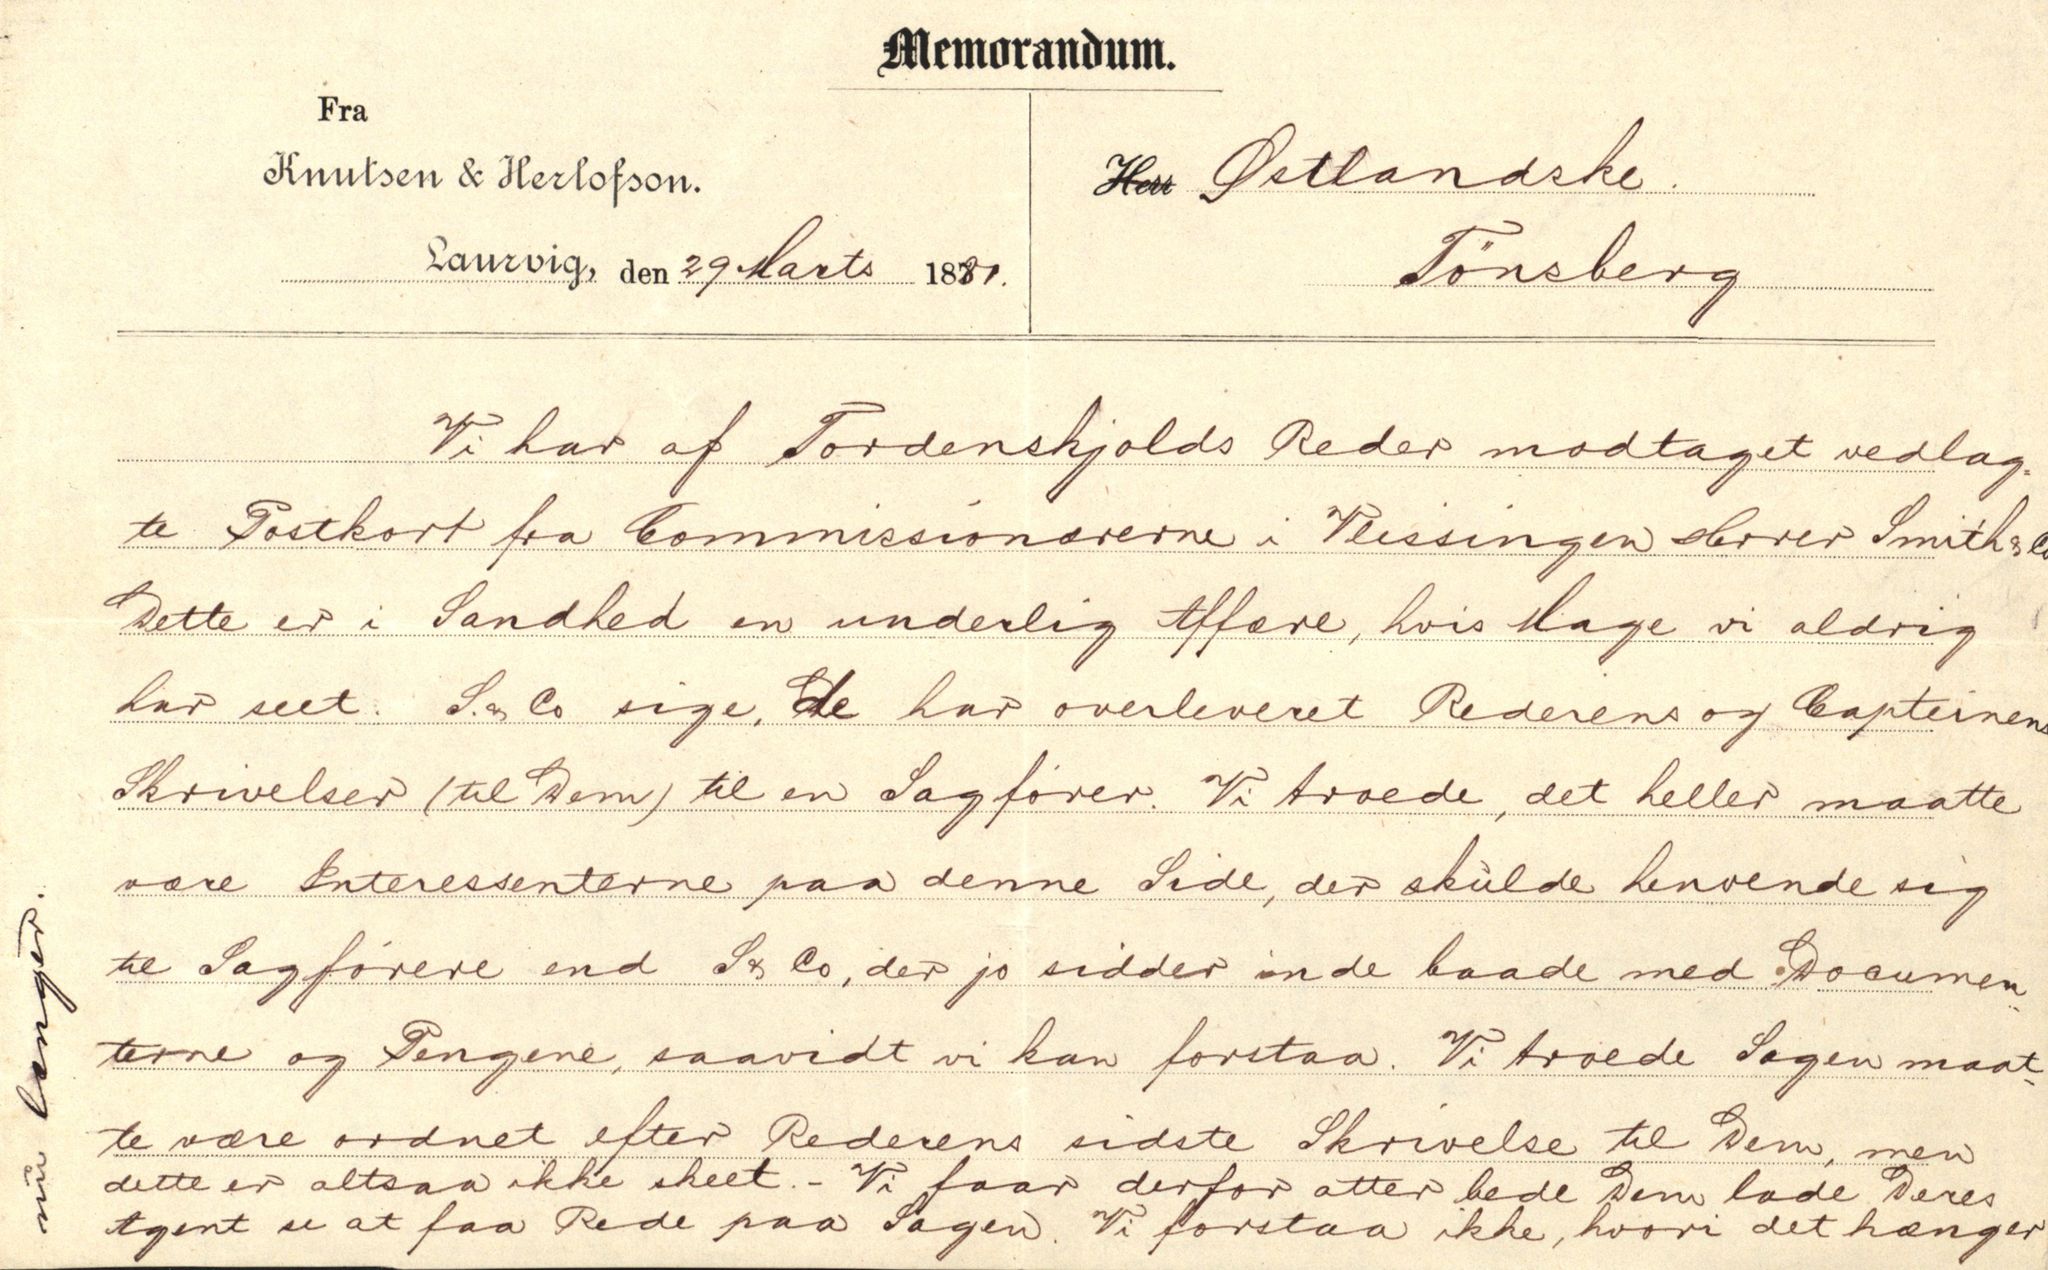 Memorandum.
Fra
Knutsen & Herlofson.
Laurvig, den 29 Marts 1881.
Herr Østlandske.
Tönsberg
Vi har af Tordenskjolds Reder modtaget vedlag-
te Postkort fra Commissionærerne i Vlissingen Herrer Smith & Co
Dette er i Sandhed en underlig Affære, hvis Mage vi aldrig
har seet. S. & Co sige, de har overleveret Rederens og Capteinens
Skrivelser (til Dem) til en Sagfører. Vi troede, det heller maatte
være Interessenterne paa denne Side, der skulde henvende sig
til Sagførere end S & Co, der jo sidder inde baade med Documen-
terne og Pengene, saavidt vi kan forstaa. Vi troede Sagen maat-
te være ordnet efter Rederens sidste Skrivelse til Dem, men
dette er altsaa ikke skeet. - Vi faar derfor atter bede Dem lade Deres
Agent se at faa Rede paa Sagen. Vi forstaa ikke, hvori det hænger
nu længer.